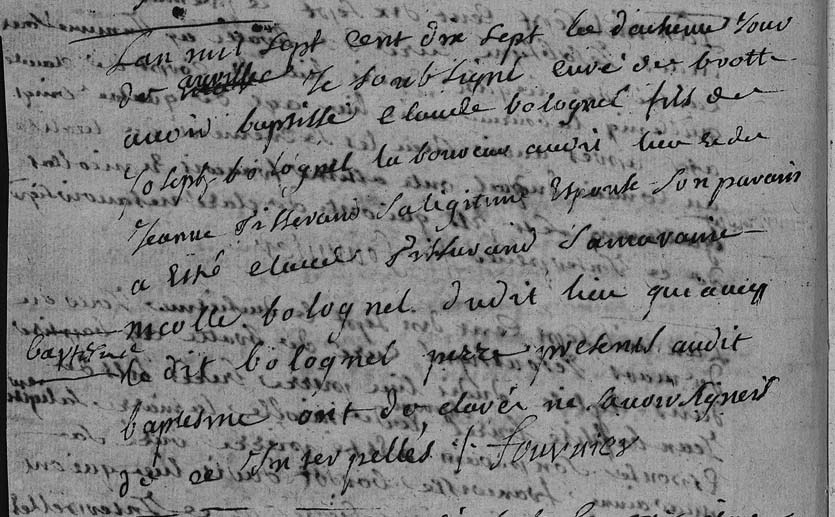 Lan mil sept cent dix sept le dixhieme Jour
de avrille Je soubsigné curé de brotte
avoir baptissé claude bolognel fils de
Joseph bolognel laboureur audit lieu et de
Jeanne tisserand sa legitime Espouse son parain
a Esté claude tisserand sa maraine
nicolle bolognel dudit lieu qui avec
baptesme
le dit bolognel perre presents audit
baptesme ont declaré ne savoir signer
de ce interpellés / fournier